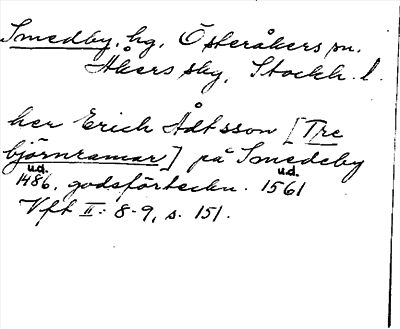 Smedby, hg, Österåkers sn.
Åkers sky, Stockh. l.
her Erich Ådtsson [Tre
björnramar] på Smedeby
u.d. u.d.
1486, godsförteckn. 1561
Vft II: 8-9, s. 151.